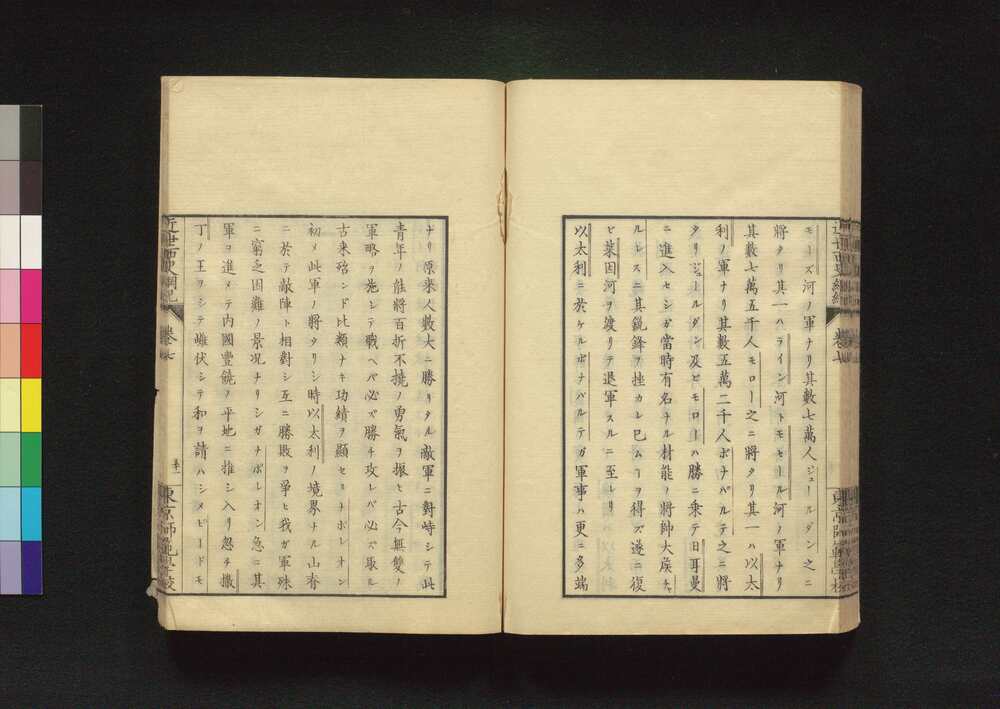 モーズ河ノ軍ナリ其數七萬人ジュールダン之ニ
將タリ其一ハライン河トモセール河ノ軍ナリ
其數七萬五千人モロー之ニ將タリ其一ハ以太
利ノ軍ナリ其數五萬二千人ボナパルテ之ニ將
タリジュールダン及ビモローハ勝ニ乗テ日耳曼
ニ進入セシガ當時有名ナル材能ノ將帥大侯チャ
ルレスニ其鋭鋒ヲ挫カレ已ムヿヲ得ズ遂ニ復
ビ萊因河ヲ渡リテ退軍スルニ至レリ
以太利ニ於ケルボナパルテガ軍事ハ更ニ多端
ナリ原來人數大ニ勝リタル敵軍ニ對峙シテ此
青年ノ能將百折不撓ノ勇氣ヲ振ヒ古今無雙ノ
軍略ヲ施シテ戰ヘバ必ズ勝チ攻レバ必ズ取ル
古來殆ンド比類ナキ功績ヲ顯セリナポレオン
初メ此軍ノ將タリシ時以太利ノ境界ナル山脊
ニ於テ敵陣ト相對シ互ニ勝敗ヲ爭ヒ我ガ軍殊
ニ窮乏困難ノ景況ナリシガナポレオン急ニ其
軍ヲ進メテ內國豐饒ノ平地ニ推シ入リ忽チ撒
丁ノ王ヲシテ雌伏シテ和ヲ請ハシメピードモ
近世西史綱紀 卷七
東京師範學校